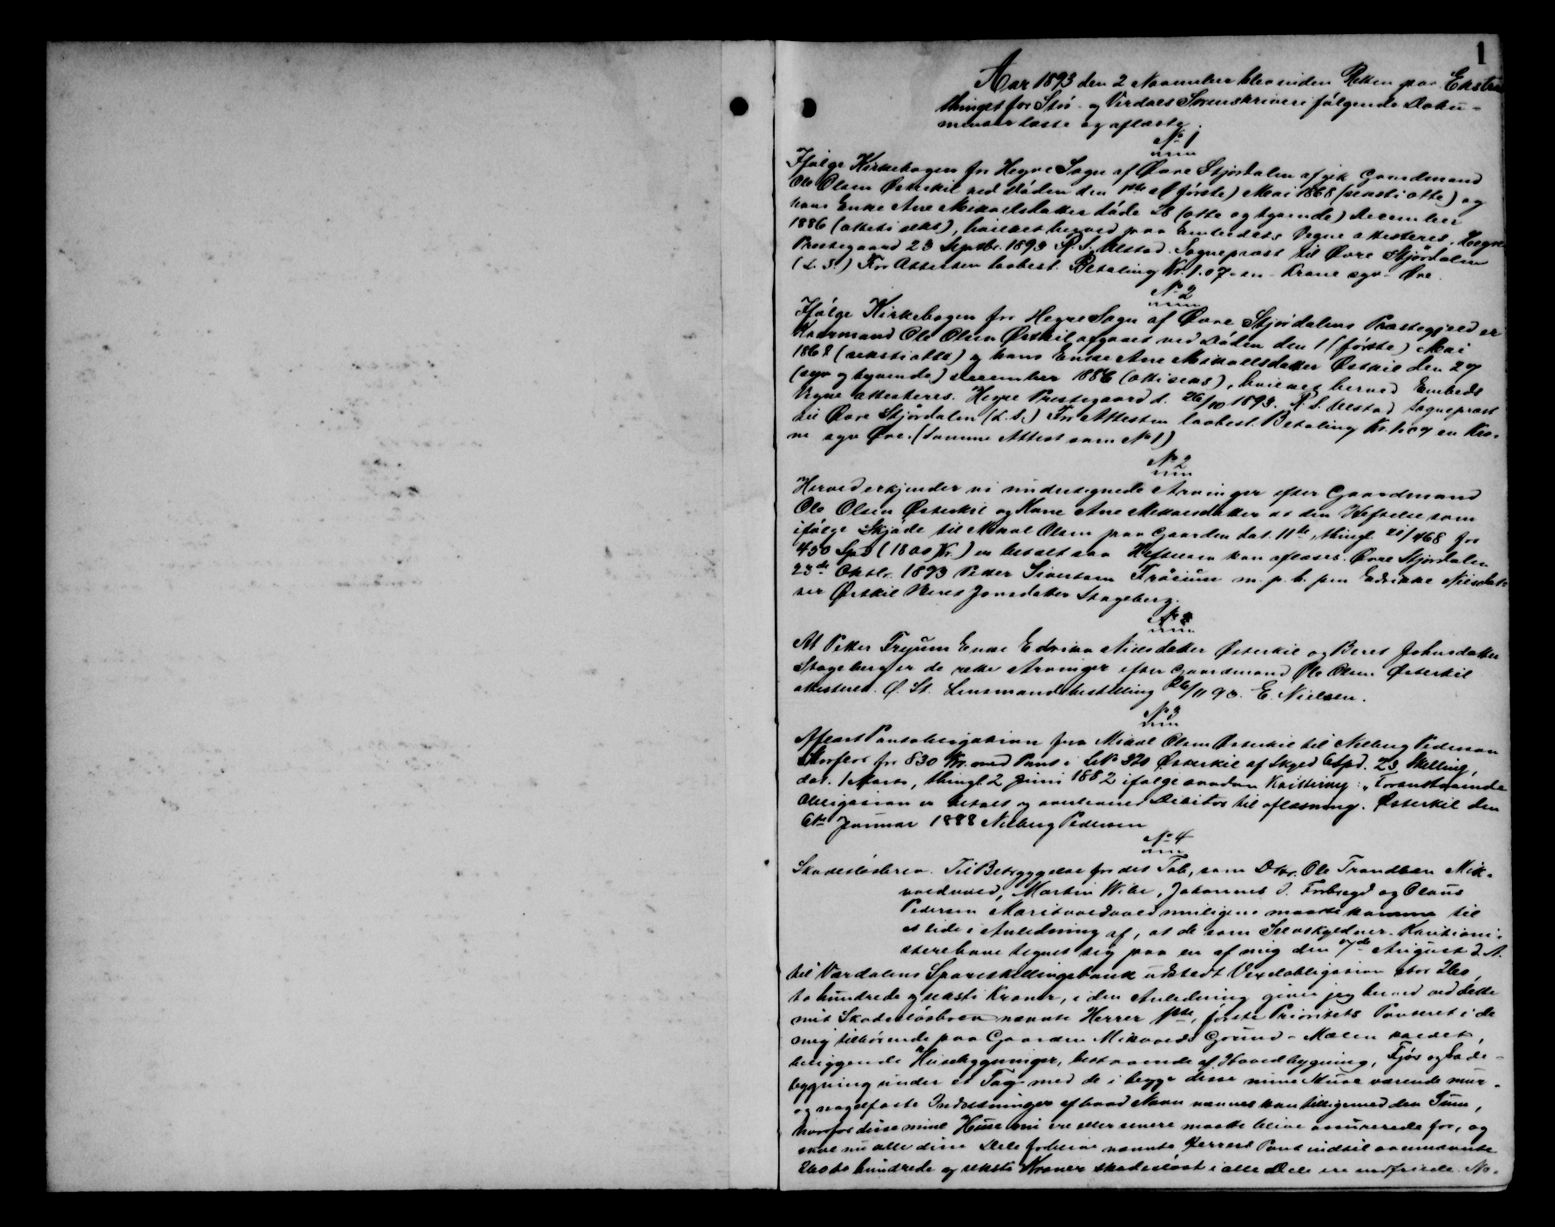 1
Aar 1893 den 2 November blev inden Retten paa Ekstra
thinget for Stør- og Værdals Sorenskriveri følgende Doku-
menter læste og aflæste.
No 1
Ifølge Kirkebogen for Hegre Sogn af Øvre Stjørdalen afgik Gaardmand
Ole Olsen Østerkil ved Døden den 1ste (første) Mai 1868 (seksti otte) og
hans Enke Ane Mikaelsdatter døde 28 (otte og tyvende) December
1886 (otteti seks), hvilket herved paa Embedets Vegne attesteres. Hegre
Prestegaard 23 Septbr. 1893 R. S. Alstad. Sogneprest til Øvre Stjørdalen
(L. S.) For Attesten lovbest. Betaling Kr. 1.07 en Krone syv Øre.
No 2
Ifølge Kirkebogen for Hegre Sogn af Øvre Stjørdalens Præstegjeld er
Gaardmand Ole Olsen Østkil afgaaet ved Døden den 1 (første) Mai
1868 (seksti otte) og hans Enke Ane Mikaelsdatter Østkil den 27
(syv og tyvende) December 1886 (otti seks), hvilket herved Embeds
Vegne attesteres. Hegre Prestegaard d. 26/10 1893. R. S. Alstad Sogneprest
til Øvre Stjørdalen (L. S.) For Attesten lovbest. Betaling Kr. 1.07 en Kro-
ne syv Øre. (Samme Attest som No 1)
No 2
Herved erkjender vi undertegnede Arvinger efter Gaardmand
Ole Olsen Østerkil og Kone Ane Mikaelsdatter at den Heftelse som
ifølge Skjøde til Mikal Olsen paa Gaarden dat. 11te, thingl. 21/4 68 for
450 Spd (1800 Kr.) er betalt saa Heftelsen kan aflæses. Øvre Stjørdalen
23de Oktbr. 1893 Petter Sivertsen Frøium m. p. p. pen Edvikke Nilsdat-
ter Østkil Beret Jonsdatter Stageberg.
No
At Petter Fryum Enke Edvika Nilsdatter Østerkil og Beret Johnsdatter
Stageberg er de rette Arvinger efter Gaardmand Ole Olsen Østerkil
attesteres. Ø. St. Lensmandsbestilling 26/11 93. E. Nielsen.
No 3
Aflæst Pantobligation fra Mikal Olsen Østerkil til Nelberg Pedersen
Storflor for 830 Kr. med Pant i LNo 320 Østerkil af Skyld 6 Spd. 23 Skilling,
dat. 1 Marts, thingl. 2 Juni 1882 ifølge saadan Kvittering: „Foranstaaende
Obligation er betalt og overleveret Debitor til aflæsning. Østerkil den
6te Januar 1888 Nelberg Pedersen
No 4
Skadesløsbrev. Til Betryggelse for det Tab, som Dhrr. Ole Trondsen Mik-
voldvald, Martin Wibe, Johannes J. Forbregd og Olaus
Pedersen Maritvoldvald muligens maatte komme til
at lide i Anledning af, at de som Selvskyldner-Kautioni-
ster have tegnet sig paa en af mig den 7de August d. A.
til Værdalens Spareskillingsbank udstedt Vexelobligation stor 260,
to hundrede og seksti Kroner, i den Anledning giver jeg herved ved dette
mit Skadesløsbrev nævnte Herrer 1ste, første Prioritets Panteret i de
mig tilhørende paa Gaarden Mikvolds Grund - Mælen kaldet,
beliggende Husebygninger, bestaaende af Hovedbygning, Fjøs og Lade-
bygning under et Tag med de i begge disse mine Huse værende mur-
og nagelfaste Indretninger af hvad Navn nævnes kan tilligemed den Sum,
hvorfor disse mine Huse nu ere eller senere maatte blive assurerede for, og
skal nu alle disse Dele forblive nævnte Herrers Pant indtil ovennævnte
260 to hundrede og seksti Kroner skadesløst i alle Dele ere indfriede. No-